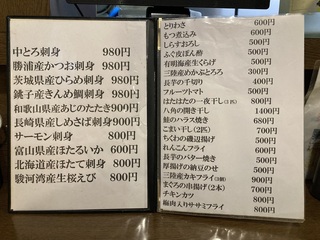 中とろ刺身 980円
勝浦産かつお刺身 980円
茨城県産ひらめ刺身 980円
銚子産きんめ鯛刺身 980円
和歌山県産あじのたたき900円
長崎県産しめさば刺身900円
サーモン刺身 800円
富山県産ほたるいか 600円
北海道産ほたて刺身 800円
駿河湾産生桜えび 800円
とりわさ 600円
もつ煮込み 600円
しらすおろし 500円
ふぐ皮ぽん酢 500円
有明海産生くらげ 500円
三陸産めかぶとろろ 300円
長芋の千切り 400円
フルーツトマト 500円
はたはたの一夜干(3匹) 800円
八角の開き干し 1400円
鮭のハラス焼き 680円
こまい干し(2匹) 700円
ちくわの磯辺揚げ 500円
れんこんフライ 600円
長芋のバター焼き 500円
厚揚げの納豆のせ 500円
三陸産カキフライ(3個) 900円
まぐろの串揚げ(2本) 700円
チキンカツ 800円
梅肉入りササミフライ 800円